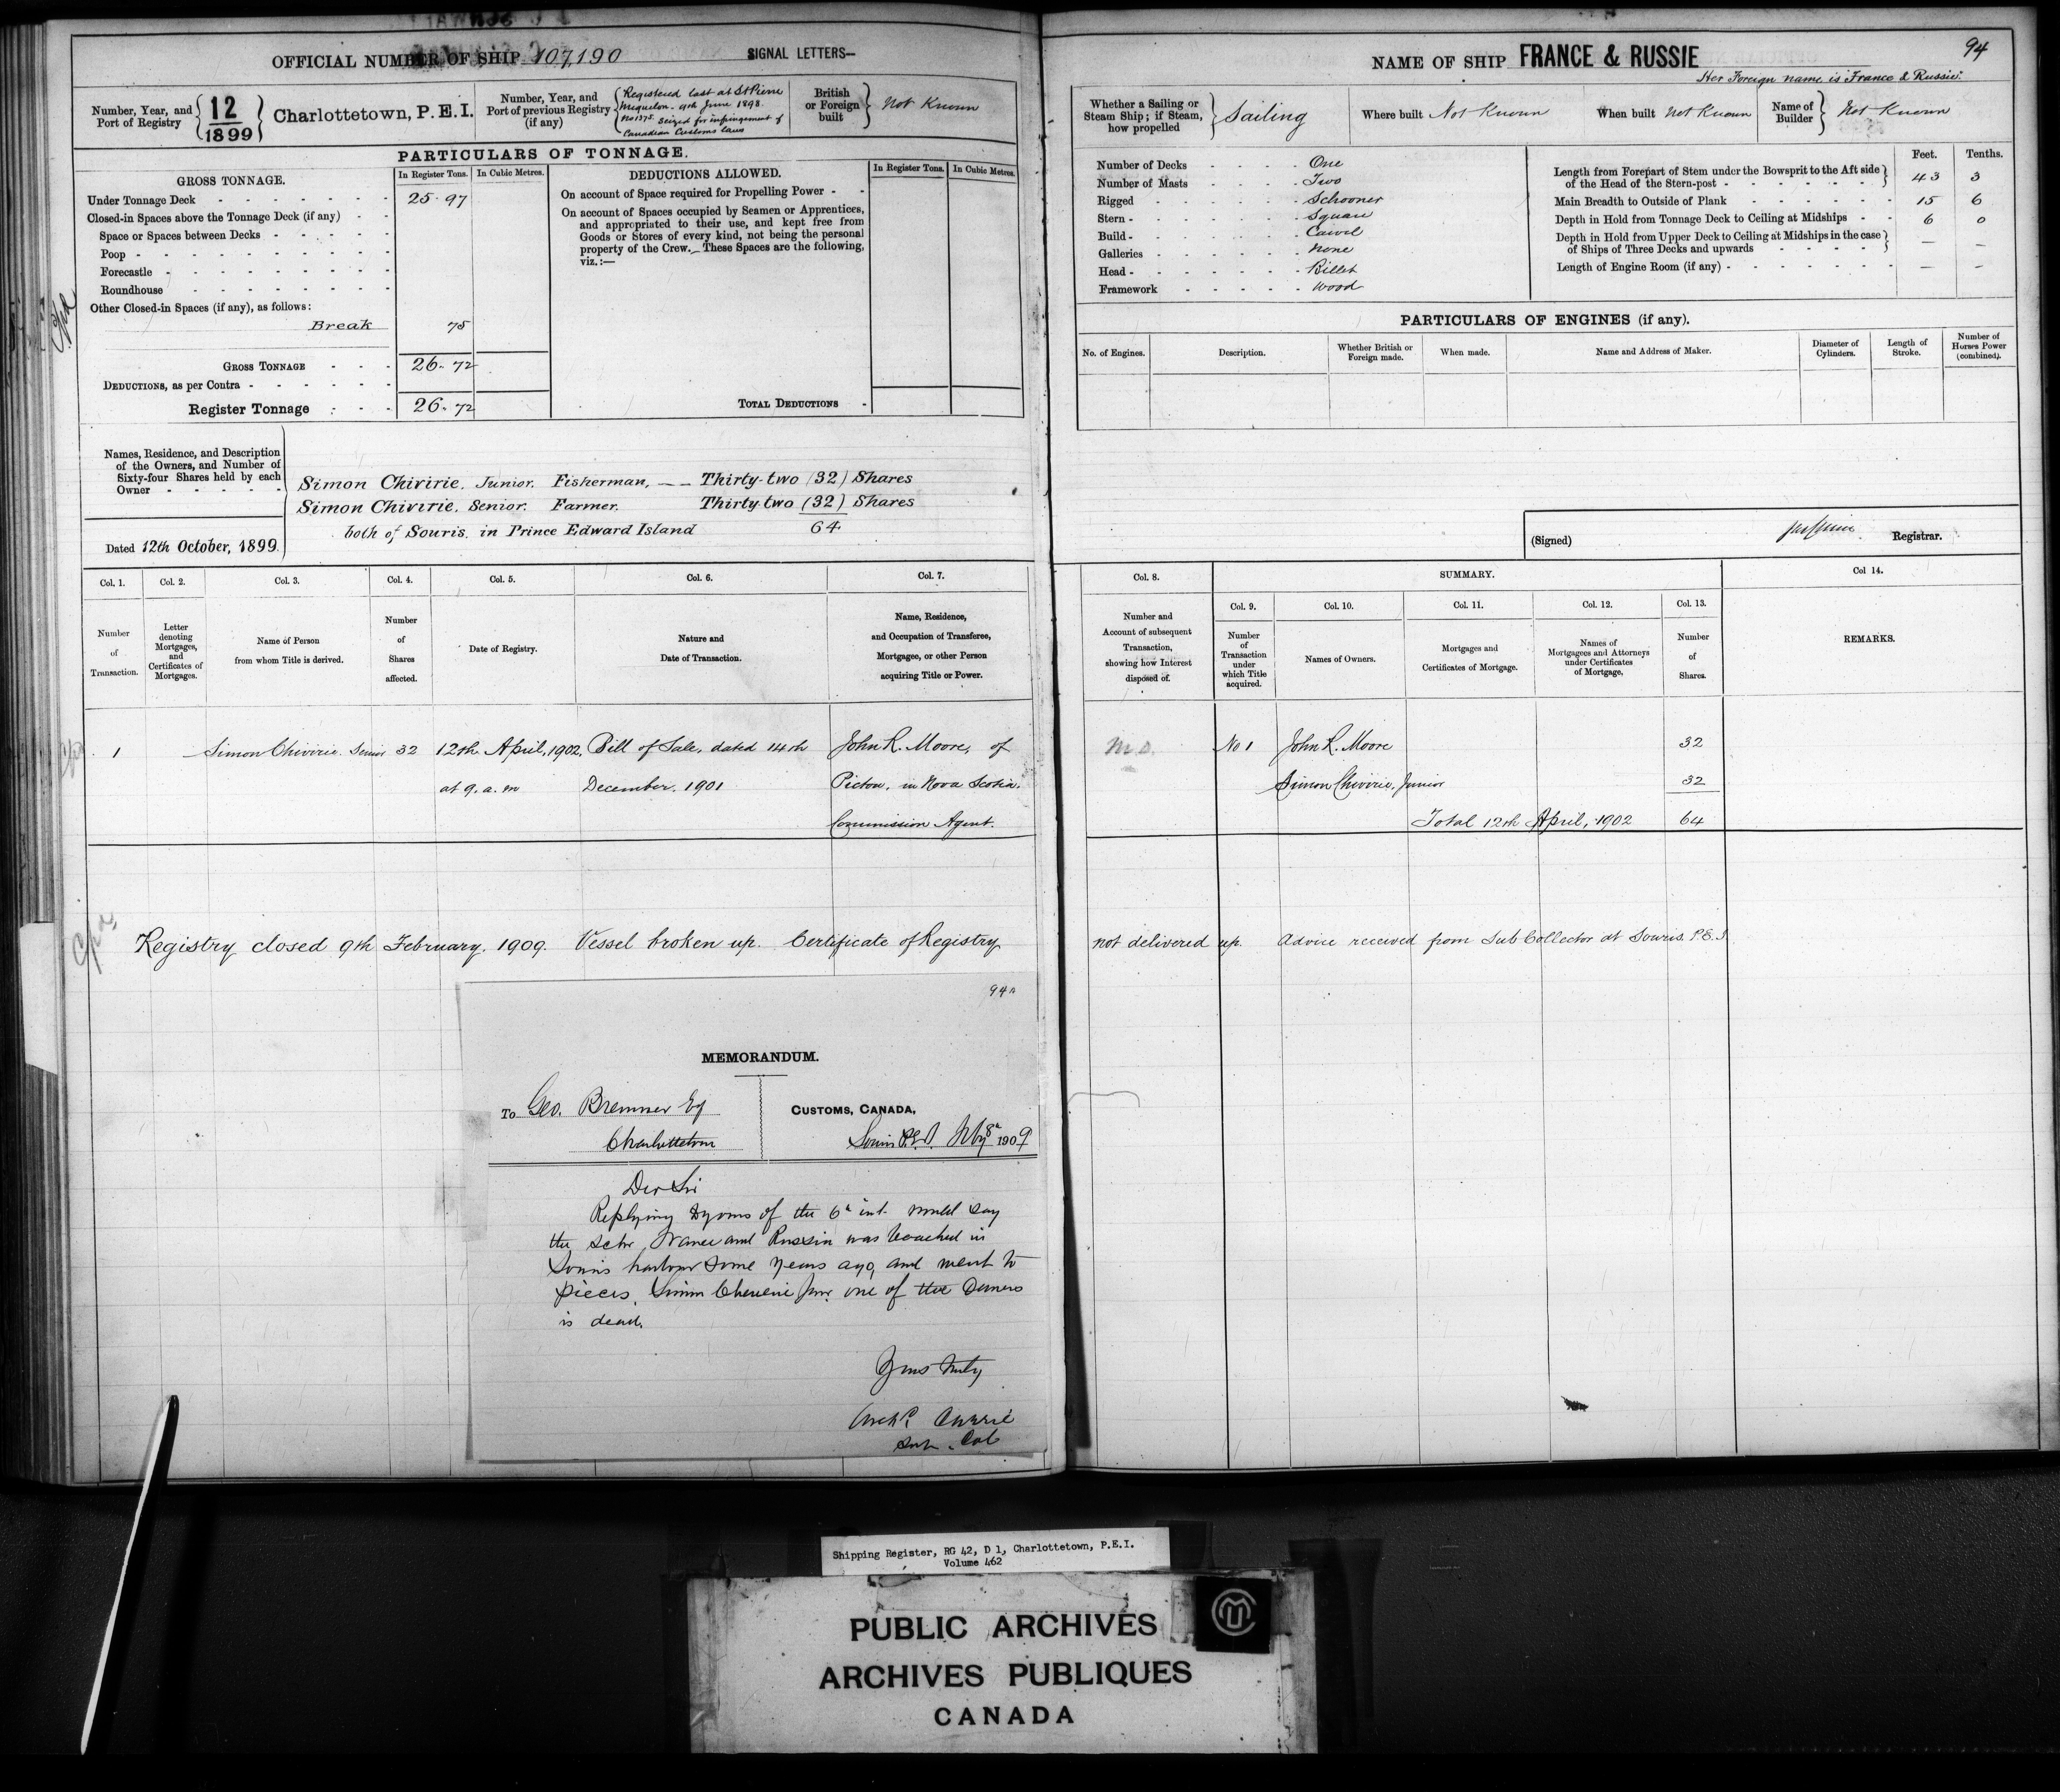 OFFICIAL NUMBER OF SHIP 107,190 SIGNAL LETTERS—
Number, Year, and Port of Registry { 12 / 1899 } Charlottetown, P.E.I.
Number, Year, and Port of previous Registry (if any) { Registered last at St Pierre
Miquelon. 9th June 1898.
No 1375. Seized for infringement of
Canadian Customs laws
British or Foreign built } Not Known
PARTICULARS OF TONNAGE.
GROSS TONNAGE. In Register Tons. In Cubic Metres.
Under Tonnage Deck 25.97
Closed-in Spaces above the Tonnage Deck (if any)
Space or Spaces between Decks
Poop
Forecastle
Roundhouse
Other Closed-in Spaces (if any), as follows:
Break 75
GROSS TONNAGE 26.72
DEDUCTIONS, as per Contra
Register Tonnage 26.72
DEDUCTIONS ALLOWED. In Register Tons. In Cubic Metres.
On account of Space required for Propelling Power
On account of Spaces occupied by Seamen or Apprentices,
and appropriated to their use, and kept free from
Goods or Stores of every kind, not being the personal
property of the Crew.—These Spaces are the following,
viz.:—
TOTAL DEDUCTIONS
Names, Residence, and Description
of the Owners, and Number of
Sixty-four Shares held by each
Owner
Simon Chivirie, Junior. Fisherman, — Thirty-two (32) Shares
Simon Chivirie, Senior. Farmer. Thirty-two (32) Shares
both of Souris, in Prince Edward Island 64
Dated 12th October, 1899.
Col. 1. Col. 2. Col. 3. Col. 4. Col. 5. Col. 6. Col. 7.
Number of Transaction.
Letter denoting Mortgages, and Certificates of Mortgages.
Name of Person from whom Title is derived.
Number of Shares affected.
Date of Registry.
Nature and Date of Transaction.
Name, Residence, and Occupation of Transferee, Mortgagee, or other Person acquiring Title or Power.
1 Simon Chivirie Senior 32 12th April, 1902, Bill of Sale, dated 14th John R. Moore, of
at 9. a.m December. 1901 Pictou, in Nova Scotia.
Commission Agent.
Registry closed 9th February, 1909. Vessel broken up. Certificate of Registry
94A
MEMORANDUM.
To Geo. Bremner Esq
Charlottetown
CUSTOMS, CANADA,
Souris P.E.I. Feby 8th 1909
Dear Sir
Replying to yours of the 6th inst. would say
the schr France and Russia was beached in
Souris harbour some years ago, and went to
pieces, Simon Cheverie Jnr. one of the Owners
is dead.
Yours truly
Archd. Currie
Sub. Col
NAME OF SHIP FRANCE & RUSSIE 94
Her Foreign name is "France & Russie".
Whether a Sailing or Steam Ship; if Steam, how propelled } Sailing
Where built Not Known
When built Not Known
Name of Builder } Not Known
Number of Decks One
Number of Masts Two
Rigged Schooner
Stern Square
Build Carvel
Galleries None
Head Billet
Framework Wood
Feet. Tenths.
Length from Forepart of Stem under the Bowsprit to the Aft side
of the Head of the Stern-post 43 3
Main Breadth to Outside of Plank 15 6
Depth in Hold from Tonnage Deck to Ceiling at Midships 6 0
Depth in Hold from Upper Deck to Ceiling at Midships in the case
of Ships of Three Decks and upwards — —
Length of Engine Room (if any) — —
PARTICULARS OF ENGINES (if any).
No. of Engines. Description. Whether British or Foreign made. When made. Name and Address of Maker. Diameter of Cylinders. Length of Stroke. Number of Horses Power (combined).
(Signed) Registrar.
Col. 8. SUMMARY. Col 14.
Col. 9. Col. 10. Col. 11. Col. 12. Col. 13.
Number and Account of subsequent Transaction, showing how Interest disposed of.
Number of Transaction under which Title acquired.
Names of Owners.
Mortgages and Certificates of Mortgage.
Names of Mortgagees and Attorneys under Certificates of Mortgage.
Number of Shares.
REMARKS.
No 1 John R. Moore 32
Simon Chivirie, Junior 32
Total 12th April, 1902 64
not delivered up. Advice received from Sub Collector at Souris. P.E.I.
Shipping Register, RG 42, D 1, Charlottetown, P.E.I.
Volume 462
PUBLIC ARCHIVES
ARCHIVES PUBLIQUES
CANADA